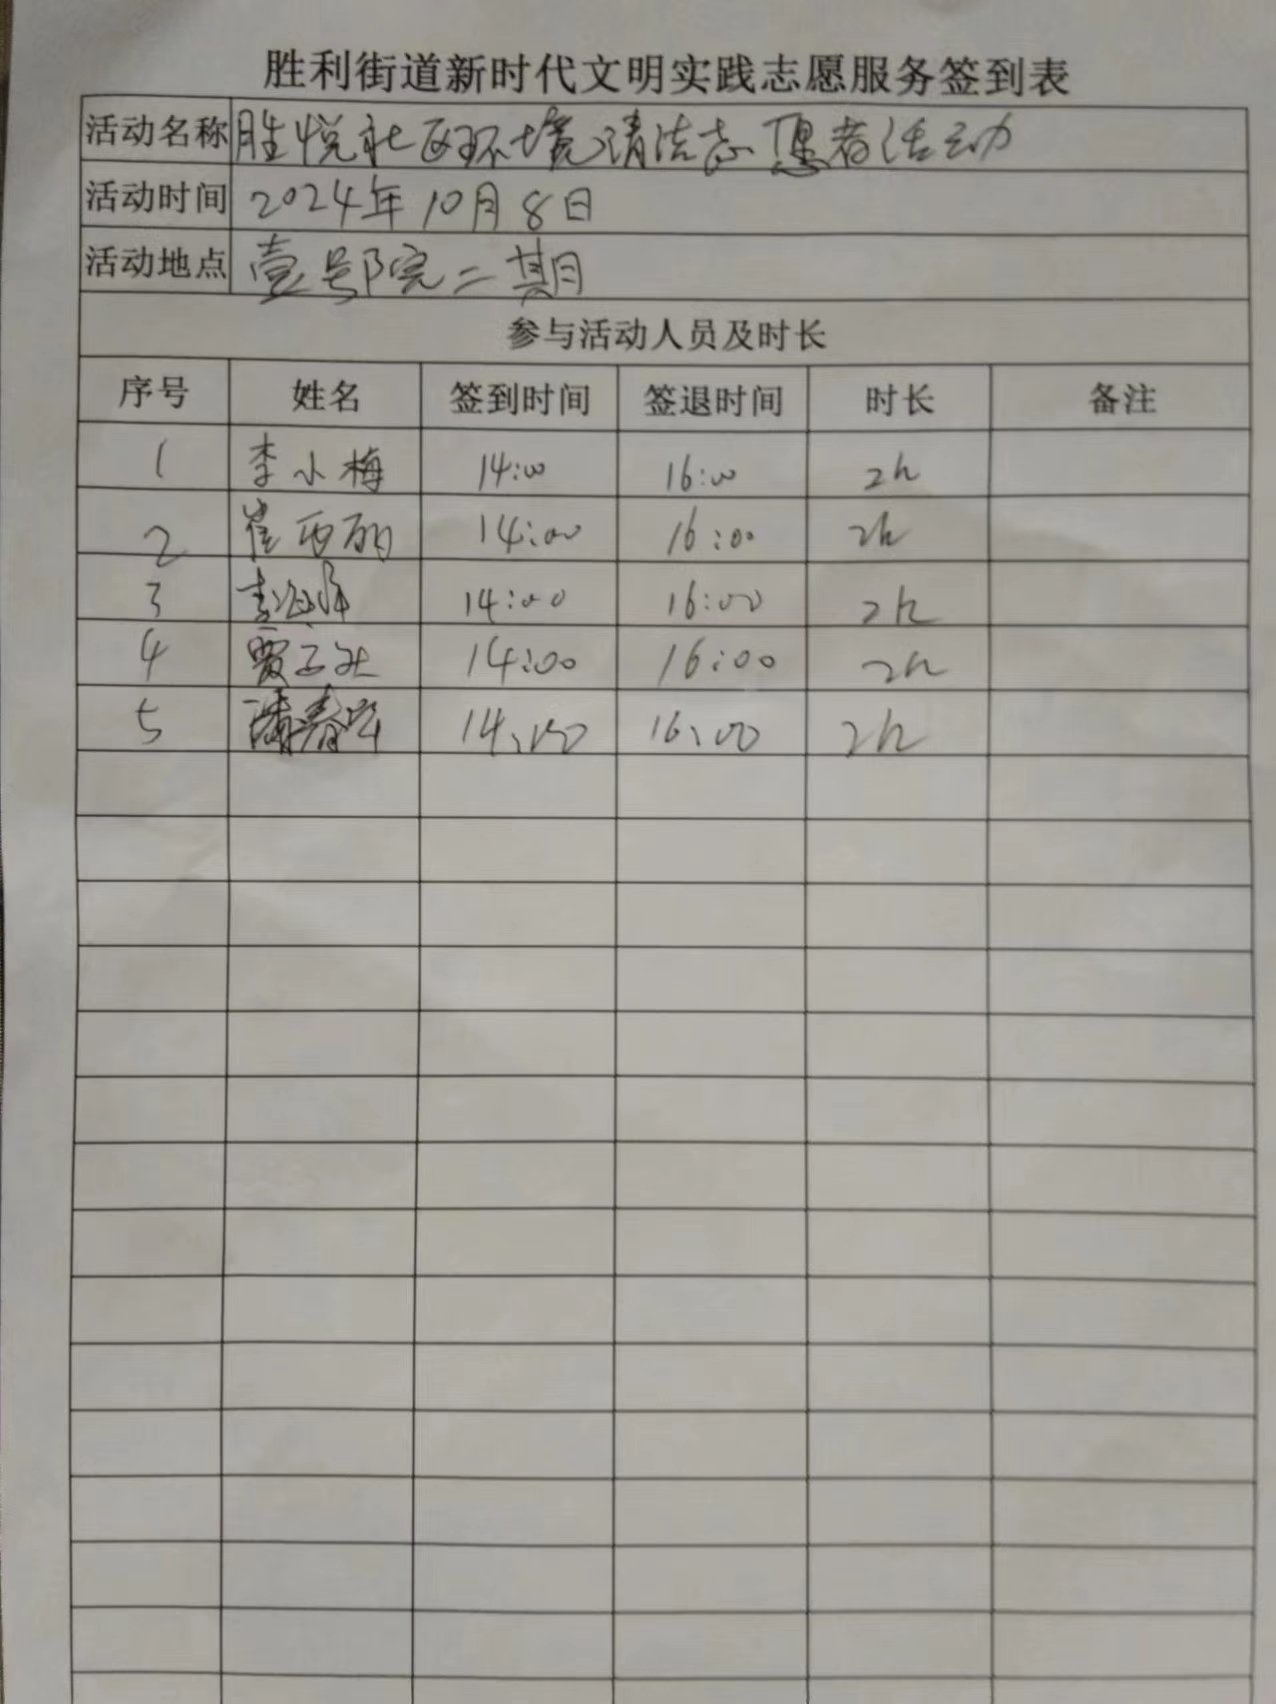 胜利街道新时代文明实践志愿服务签到表
活动名称 胜悦社区环境清洁志愿者活动
活动时间 2024年10月8日
活动地点 壹号院二期
参与活动人员及时长
序号 姓名 签到时间 签退时间 时长 备注
1 李小梅 14:00 16:00 2h
2 崔西丽 14:00 16:00 2h
3 14:00 16:00 2h
4 14:00 16:00 2h
5 潘春 14:00 16:00 2h